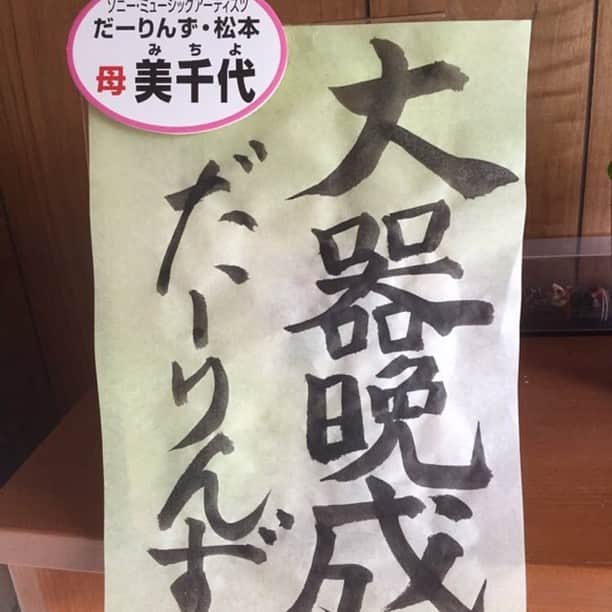 ソニー・ミュージックアーティスツ
だーりんず・松本
みちよ
母 美千代
大器晩成
だーりんず